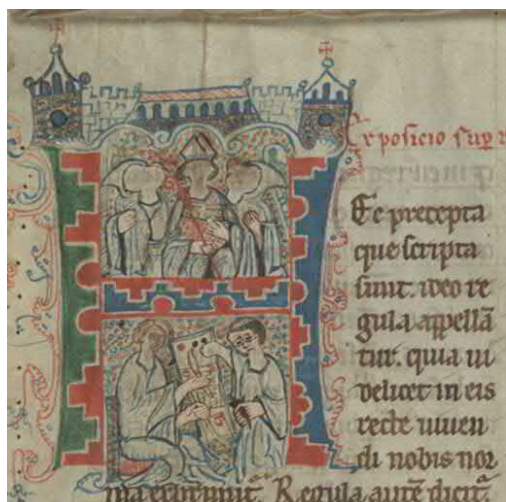 Exposicio sup
Ec precepta
que scripta
sunt. ideo re
gula appellā
tur. quia ui
delicet in eis
recte uiuen
di nobis nor
ma exprimit᷑. Regula. autē dicit᷑